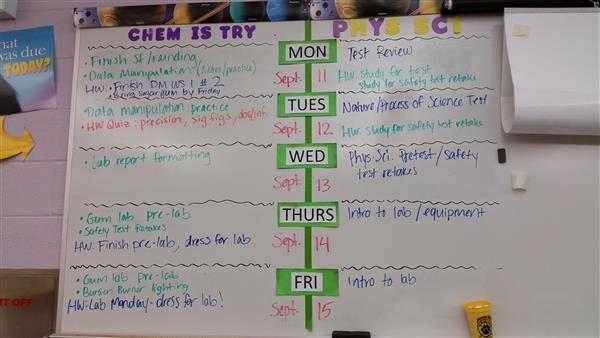 CHEM IS TRY
PHYS SCI
hat
was due
TODAY?
MON
Sept. 11
• Finish SF/rounding
• Data Manipulation (Notes/practice)
HW: • Finish DM WS 1 # 2
• Bring sugar gum by Friday
Test Review
HW: study for test
study for safety test retake
TUES
Sept. 12
• Data manipulation practice
• HW Quiz: precision, sig figs,
Nature/Process of Science Test
HW: study for safety test retake
WED
Sept. 13
• Lab report formatting
Phys. Sci. Pretest/Safety
test retakes
THURS
Sept. 14
• Gum lab pre-lab
• Safety Test Retakes
HW: Finish pre-lab, dress for lab
Intro to lab/equipment
FRI
Sept. 15
• Gum lab pre-lab
• Bunsen Burner lighting
HW: Lab Monday - dress for lab!
Intro to lab
IT OFF